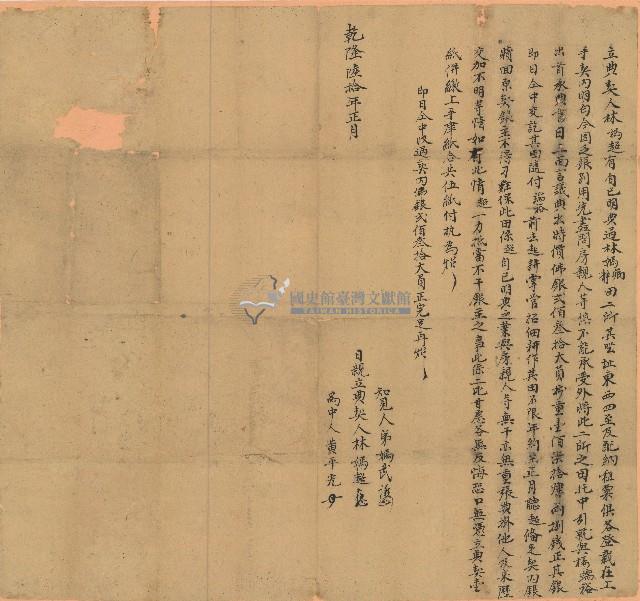 立典契人林媽超有自己明典過林媽 田二所其坵址東西四至及配納租粟俱各登載在上
手契內明白今因乏銀別用先盡問房親人等俱不能承受外將此二所之田托中引就與楊端裕
出首承典當日三面言議典出時價佛銀弍佰叁拾大員折重壹佰 拾 兩捌錢正其銀
即日仝中交訖其田隨付端裕前去起耕掌管招佃耕作其田不限年約至正月聽超備足契內銀
將回原契銀主不得刁難保此田係超自己明典之業與房親人等無干亦無重張典掛他人及來歷
交加不明等情如有此情超一力抵當不干銀主之事此係二比甘愿各無反悔恐口無憑立典契壹
紙併繳上手 共伍紙付執為炤
即日仝中收過契內佛銀弍佰叁拾大員正完足再炤
乾隆陸拾年正月 日
知見人弟媽武
親立典契人林媽超
為中人黃平光
國史館臺灣文獻館
TAIWAN HISTORICA